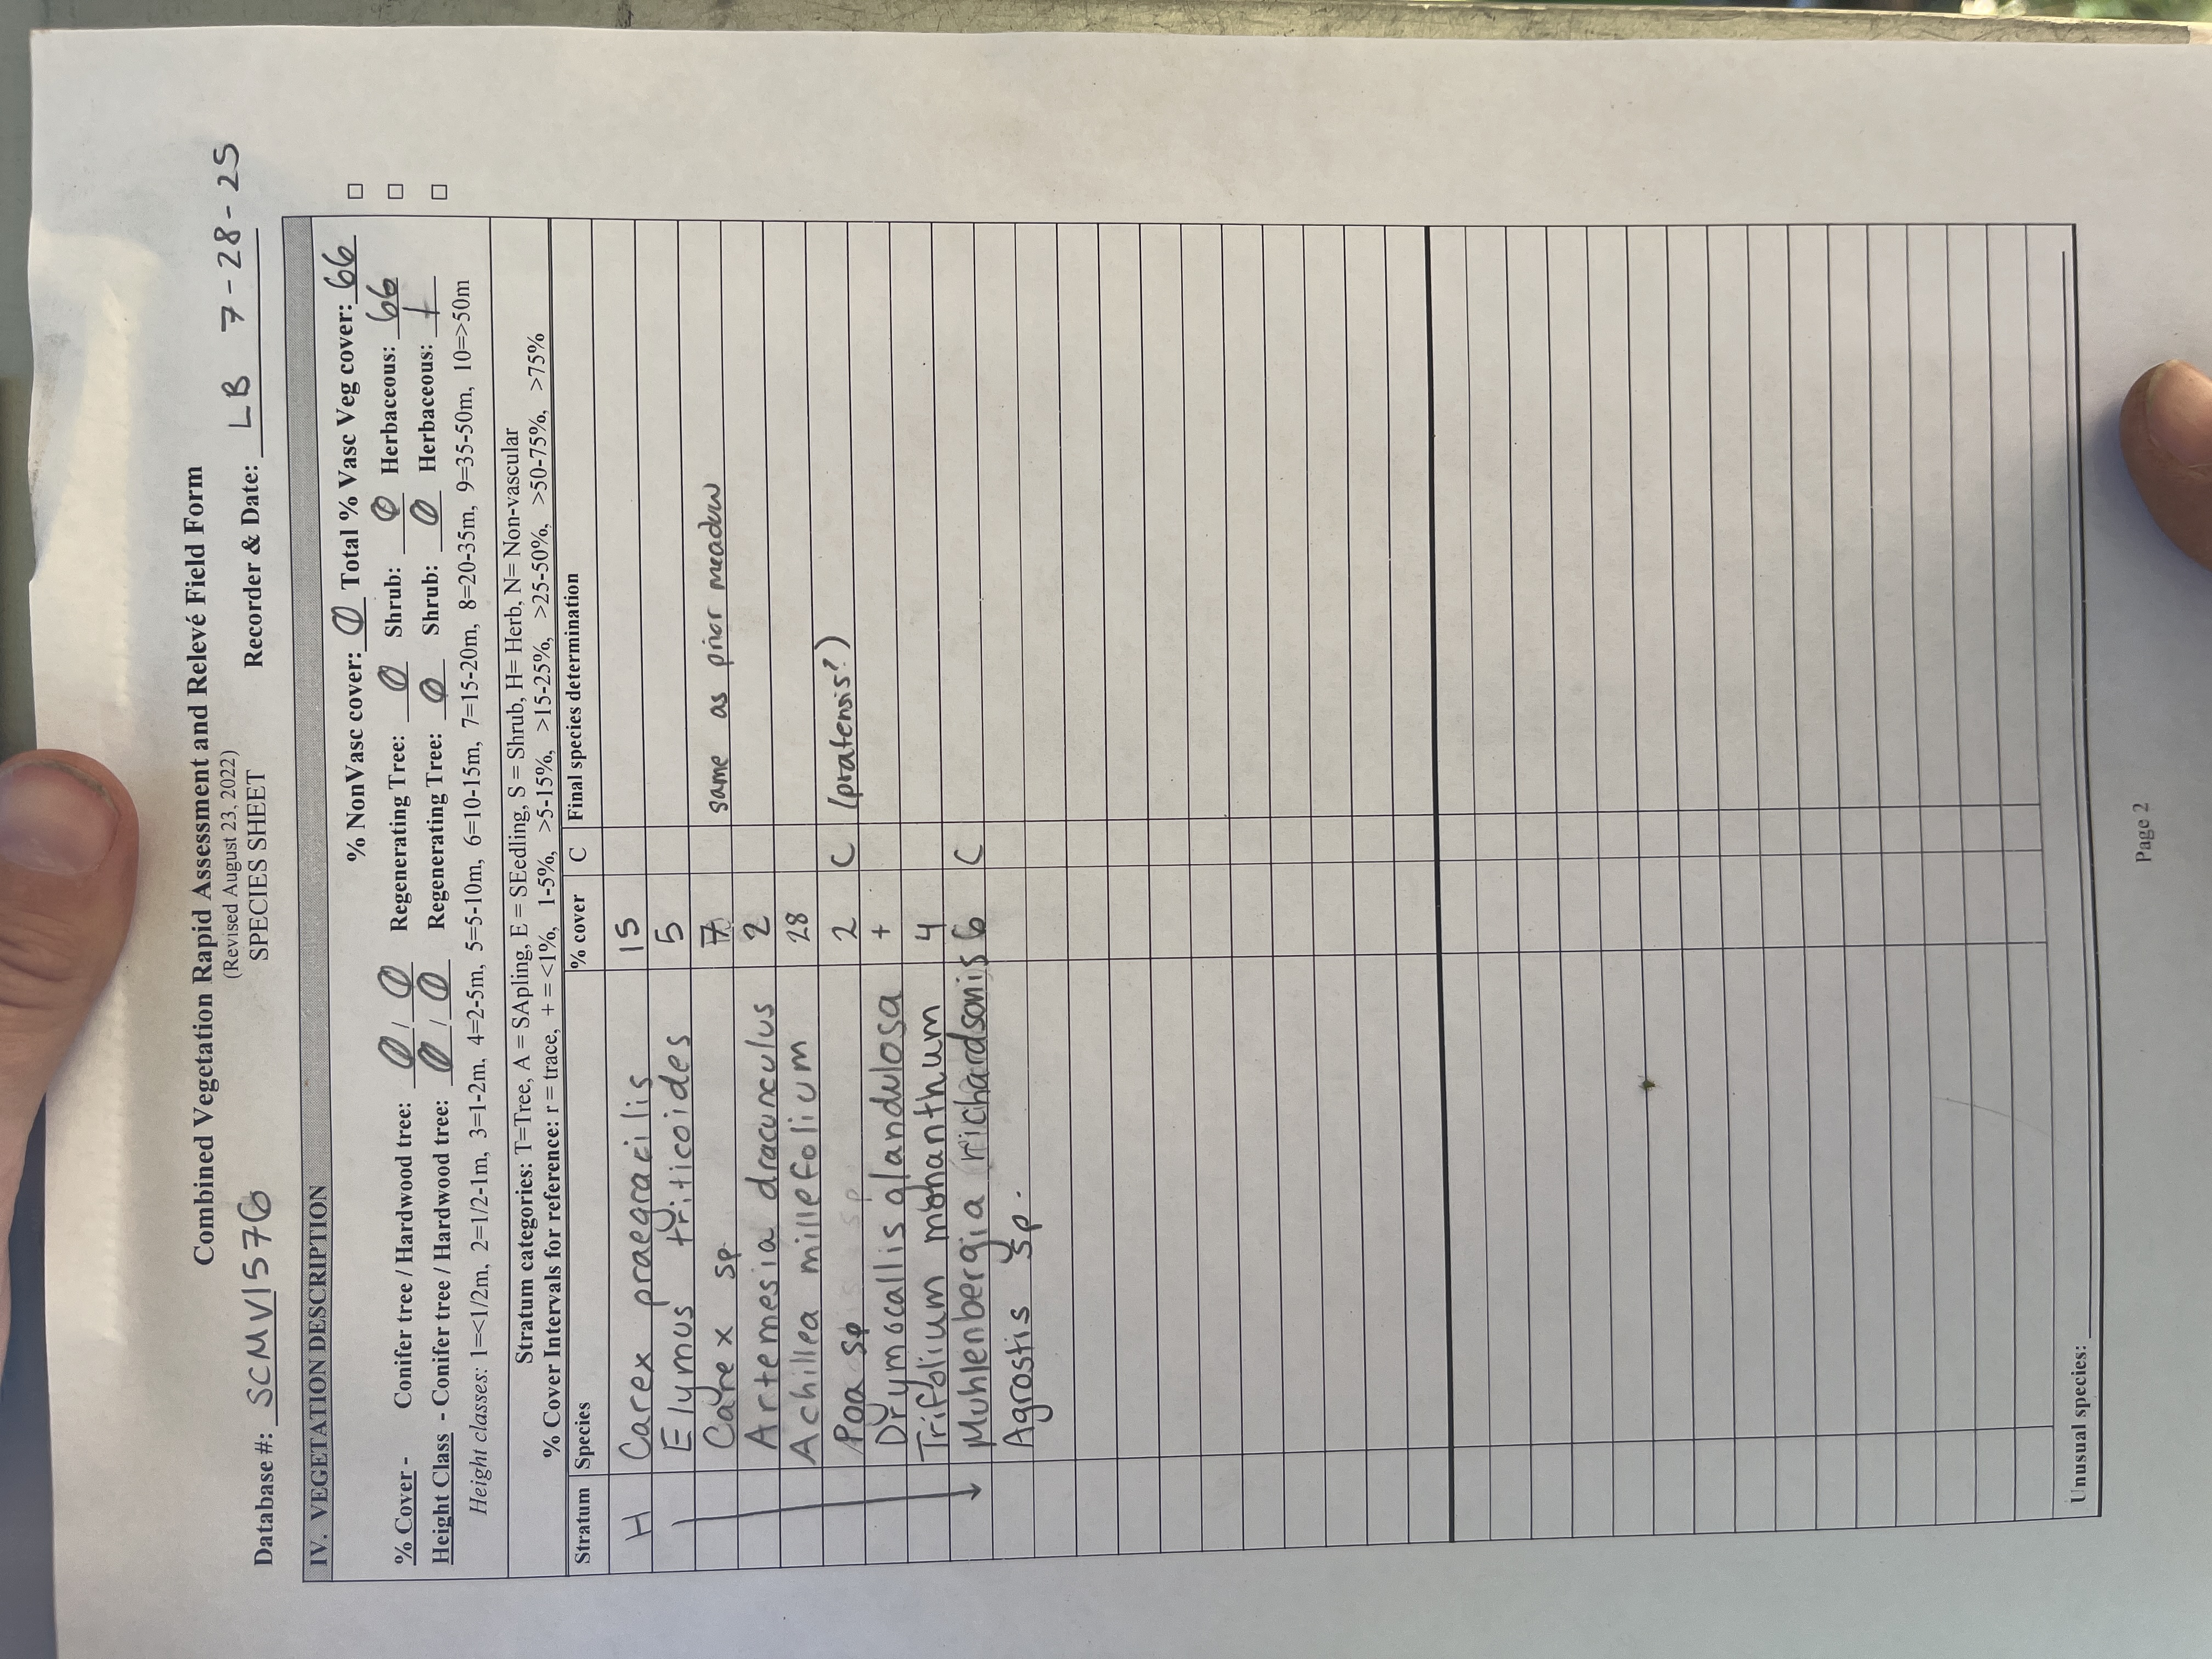 Combined Vegetation Rapid Assessment and Relevé Field Form
(Revised August 23, 2022)
SPECIES SHEET
Database #: SCMV1576 Recorder & Date: LB 7-28-25
IV. VEGETATION DESCRIPTION
% NonVasc cover: 0 Total % Vasc Veg cover: 66 □
% Cover - Conifer tree / Hardwood tree: 0 / 0 Regenerating Tree: 0 Shrub: 0 Herbaceous: 66 □
Height Class - Conifer tree / Hardwood tree: 0 / 0 Regenerating Tree: 0 Shrub: 0 Herbaceous: 1 □
Height classes: 1=<1/2m, 2=1/2-1m, 3=1-2m, 4=2-5m, 5=5-10m, 6=10-15m, 7=15-20m, 8=20-35m, 9=35-50m, 10=>50m
Stratum categories: T=Tree, A = SApling, E = SEedling, S = Shrub, H= Herb, N= Non-vascular
% Cover Intervals for reference: r = trace, + = <1%, 1-5%, >5-15%, >15-25%, >25-50%, >50-75%, >75%
Stratum Species % cover C Final species determination
H Carex praegracilis 15
Elymus triticoides 5
Carex sp. 7 same as prior meadow
Artemesia dracunculus 2
Achillea millefolium 28
Poa sp 2 C (pratensis?)
Drymocallis glandulosa +
Trifolium mohanthum 4
Muhlenbergia richardsonis 6 C
Agrostis sp.
Unusual species:
Page 2